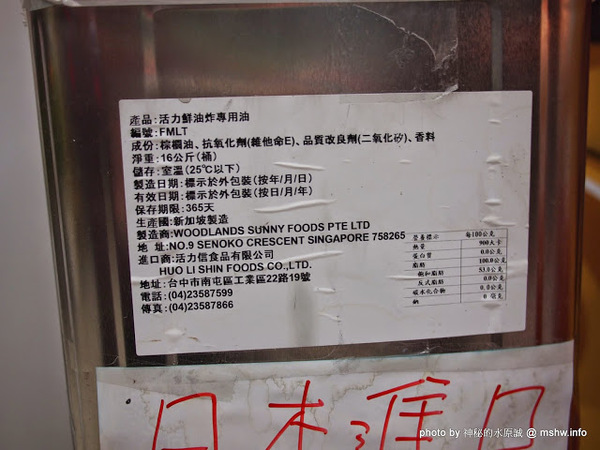 產品:活力鮮油炸專用油
編號:FMLT
成份:棕櫚油、抗氧化劑(維他命E)、品質改良劑(二氧化矽)、香料
淨重:16公斤(桶)
儲存:室溫(25℃以下)
製造日期:標示於外包裝(按年/月/日)
有效日期:標示於外包裝(按日/月/年)
保存期限:365天
生產國:新加坡製造
製造商:WOODLANDS SUNNY FOODS PTE LTD
地 址:NO.9 SENOKO CRESCENT SINGAPORE 758265
進口商:活力信食品有限公司
HUO LI SHIN FOODS CO.,LTD.
地址:台中市南屯區工業區22路19號
電話:(04)23587599
傳真:(04)23587866
營養標示 每100公克
熱量 900大卡
蛋白質 0.0公克
脂肪 100.0公克
飽和脂肪 53.0公克
反式脂肪 0.0公克
碳水化合物 0.0公克
鈉 0 毫克
日本進口
photo by 神秘的水原誠 @ mshw.info